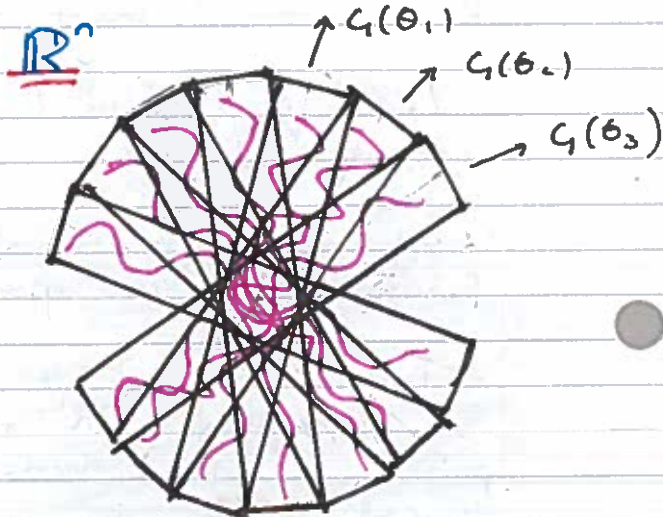 ℝⁿ
G(θ₁)
G(θ₂)
G(θ₃)